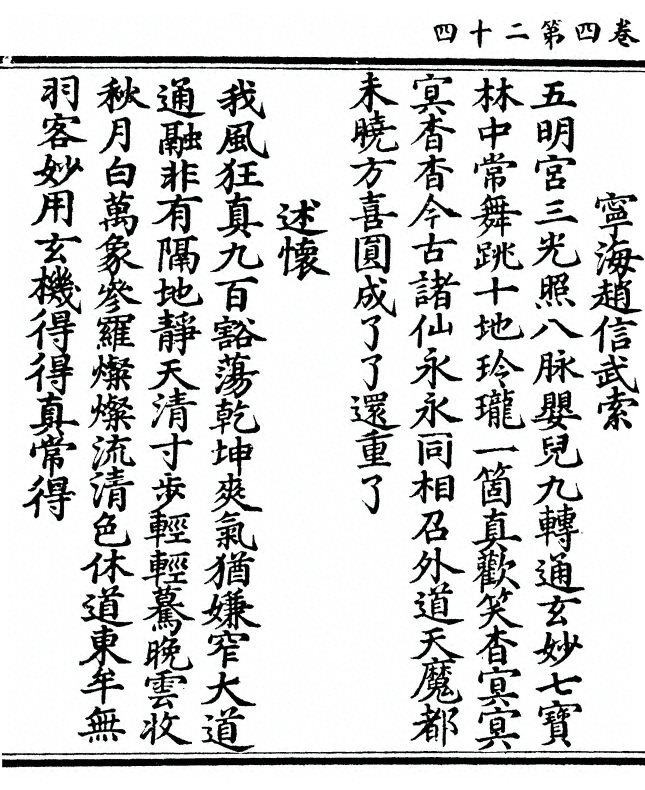 卷四第二十四
寧海趙信武索
五明宮三光照八脉嬰兒九轉通玄妙七寶
林中常舞跳十地玲瓏一箇真歡笑杳冥冥
冥杳杳今古諸仙永永同相召外道天魔都
未曉方喜圓成了了還重了
述懷
我風狂真九百豁蕩乾坤爽氣猶嫌窄大道
通融非有隔地靜天清寸步輕輕驀晚雲收
秋月白萬象參羅燦燦流清色休道東牟無
羽客妙用玄機得得真常得